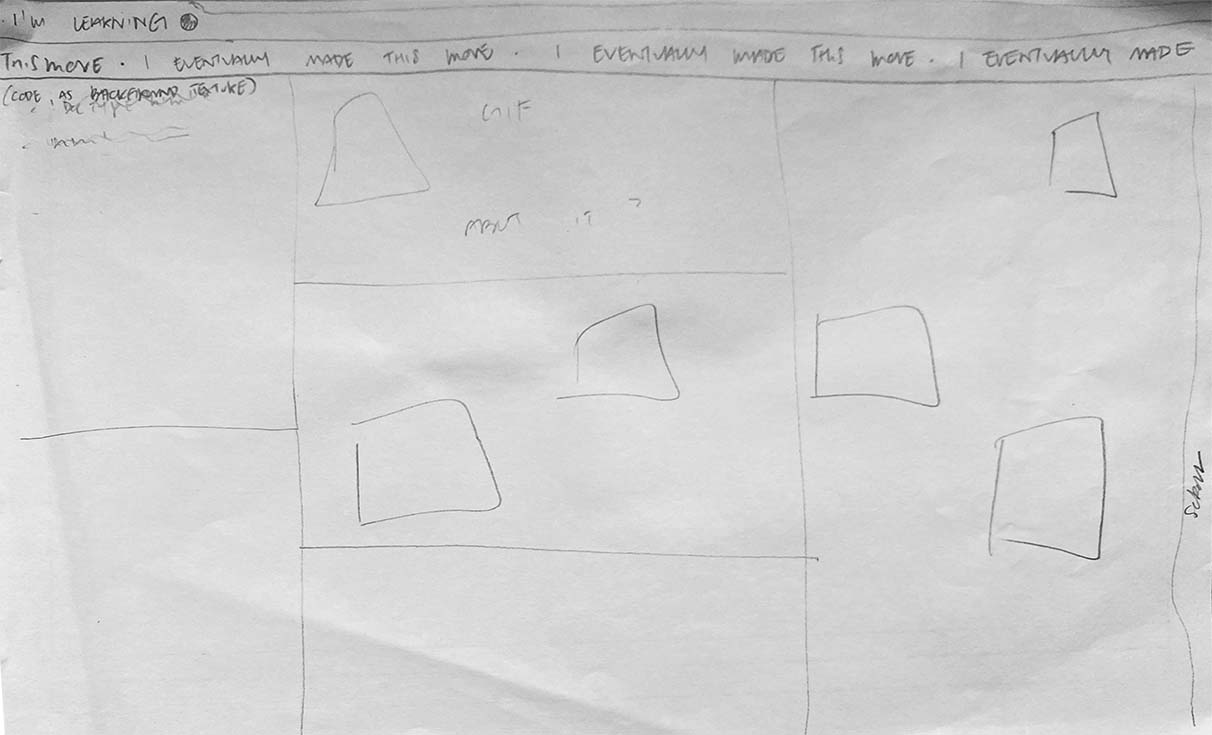 . I'm LEARNING
This move . I EVENTUALLY MADE THIS MOVE . I EVENTUALLY MADE THIS MOVE . I EVENTUALLY MADE
(CODE AS BACKGROUND TEXTURE)
. ! DOCTYPE
GIF
ABOUT IT ?
SCROLL